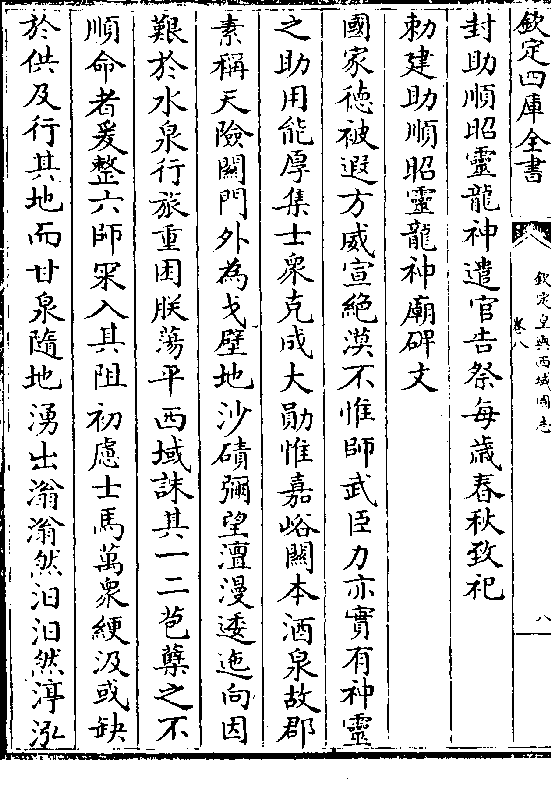 欽定四庫全書
欽定皇輿西域圖志
卷八
八
封助順昭靈龍神遣官告祭每歲春秋致祀
勅建助順昭靈龍神廟碑文
國家德被遐方威宣絶漠不惟師武臣力亦實有神靈
之助用能厚集士衆克成大勛惟嘉峪關本酒泉故郡
素稱天險關門外為戈壁地沙磧彌望澶漫逶迤向因
艱於水泉行旅重困朕蕩平西域誅其一二苞孽之不
順命者爰整六師罙入其阻初慮士馬萬衆綆汲或缺
於供及行其地而甘泉隨地湧出滃滃然汩汩然渟泓